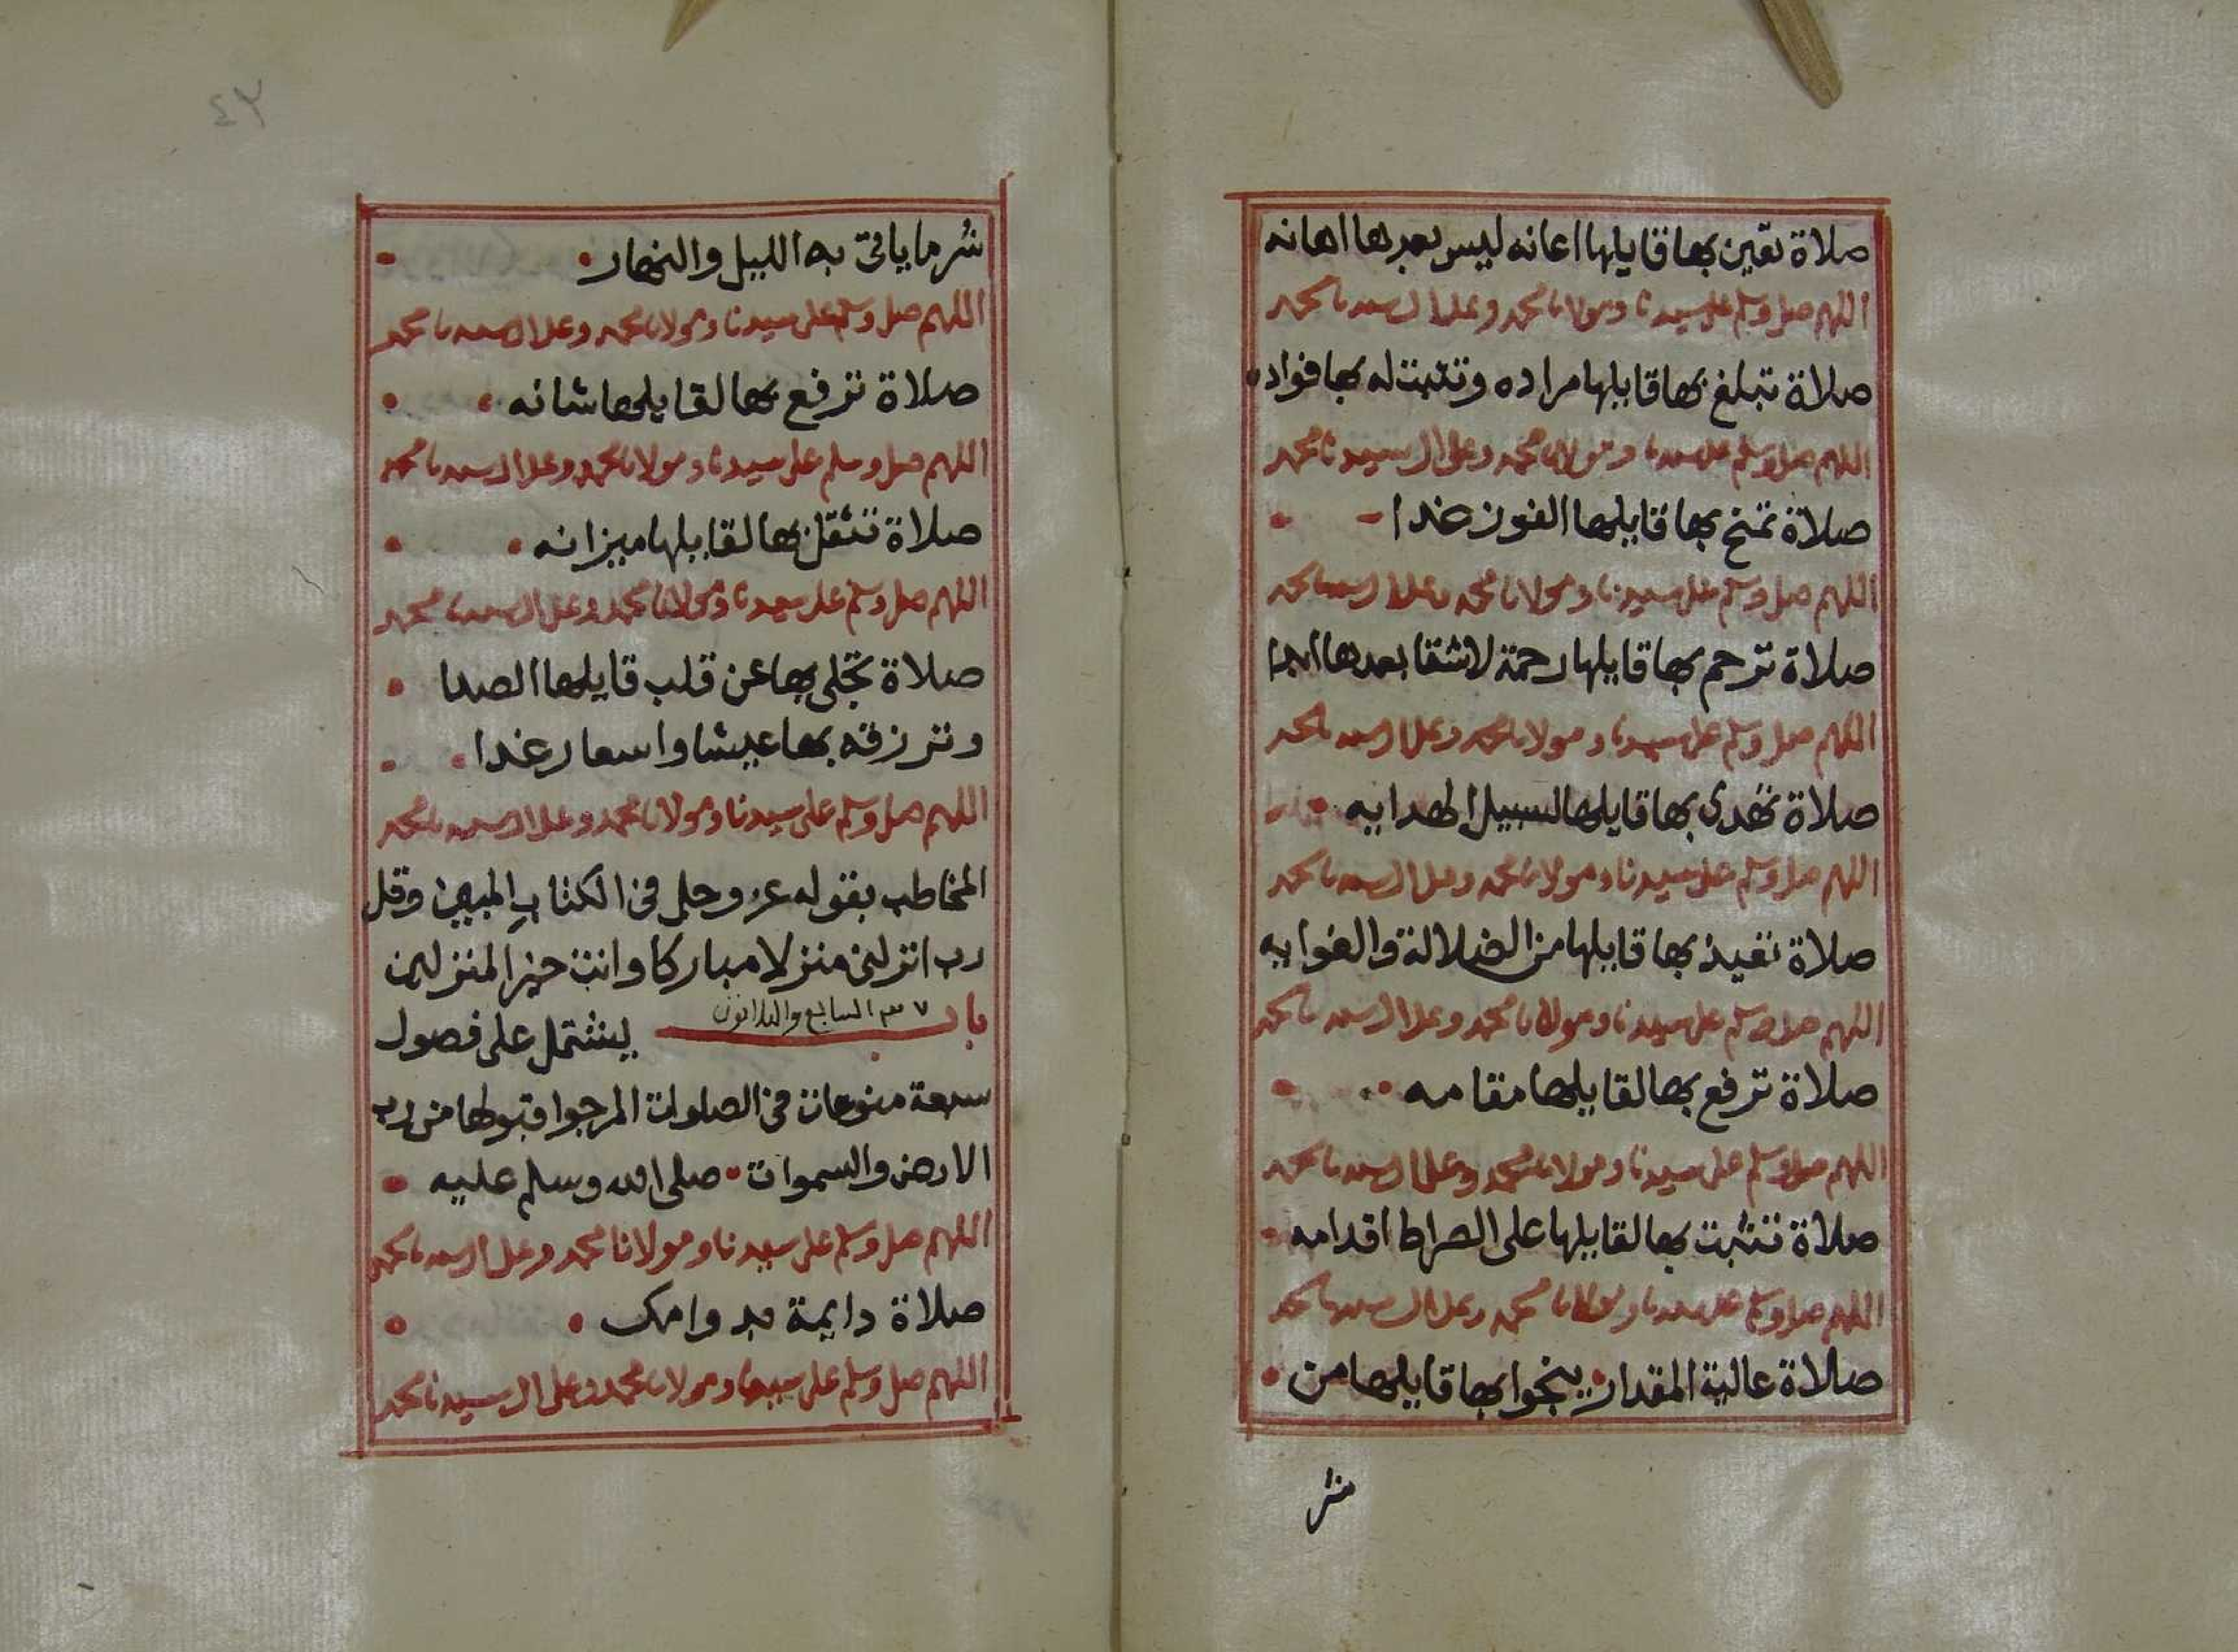 صلاة تعين بها قايلها اعانه ليس بعدها اهانه
اللهم صل وسلم على سيدنا ومولانا محمد وعلى ال سيدنا محمد
صلاة تبلغ بها قايلها مراده وتثبت له بها فواده
اللهم صل وسلم على سيدنا ومولانا محمد وعلى ال سيدنا محمد
صلاة تمنح بها قايلها الفوز غدا
اللهم صل وسلم على سيدنا ومولانا محمد وعلى ال سيدنا محمد
صلاة ترحم بها قايلها رحمة لا شقا بعدها ابدا
اللهم صل وسلم على سيدنا ومولانا محمد وعلى ال سيدنا محمد
صلاة تهدى بها قايلها لسبيل الهدايه
اللهم صل وسلم على سيدنا ومولانا محمد وعلى ال سيدنا محمد
صلاة تعيذ بها قايلها من الضلالة والغوايه
اللهم صل وسلم على سيدنا ومولانا محمد وعلى ال سيدنا محمد
صلاة ترفع بها لقايلها مقامه
اللهم صل وسلم على سيدنا ومولانا محمد وعلى ال سيدنا محمد
صلاة تثبت بها لقايلها على الصراط اقدامه
اللهم صل وسلم على سيدنا ومولانا محمد وعلى ال سيدنا محمد
صلاة عالية المقدار ينجوا بها قايلها من
شر
٤٣
شر ما ياتى به الليل والنهار
اللهم صل وسلم على سيدنا ومولانا محمد وعلى ال سيدنا محمد
صلاة ترفع بها لقايلها شانه
اللهم صل وسلم على سيدنا ومولانا محمد وعلى ال سيدنا محمد
صلاة تثقل بها لقايلها ميزانه
اللهم صل وسلم على سيدنا ومولانا محمد وعلى ال سيدنا محمد
صلاة تجلى بها عن قلب قايلها الصدا
وترزقه بها عيشا واسعا رغدا
اللهم صل وسلم على سيدنا ومولانا محمد وعلى ال سيدنا محمد
المخاطب بقوله عز وجل فى الكتاب المبين وقل
رب انزلنى منزلا مباركا وانت خير المنزلين
باب ٣٧ السابع والثلاثون يشتمل على فصول
سبعة منوعات فى الصلوات المرجوا قبولها من رب
الارض والسموات صلى الله وسلم عليه
اللهم صل وسلم على سيدنا ومولانا محمد وعلى ال سيدنا محمد
صلاة دايمة بدوامك
اللهم صل وسلم على سيدنا ومولانا محمد وعلى ال سيدنا محمد